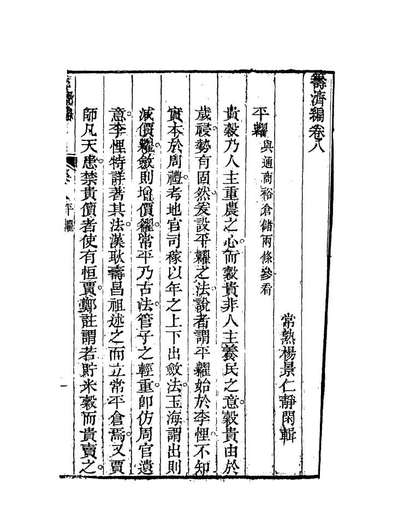 籌濟編卷八
常熟楊景仁靜閑輯
平糶與通商裕倉儲兩條參看
貴穀乃人主重農之心而穀貴非人主養民之意穀貴由於
歲祲勢有固然爰設平糶之法說者謂平糶始於李悝不知
實本於周禮考地官司稼以年之上下出斂法玉海謂出則
減價糶斂則增價糴常平乃古法管子之輕重卽仿周官遺
意李悝特詳著其法漢耿壽昌祖述之而立常平倉焉又賈
師凡天患禁貴價者使有恒賈鄭註謂若貯米穀而貴賣之
卷八平糶
一